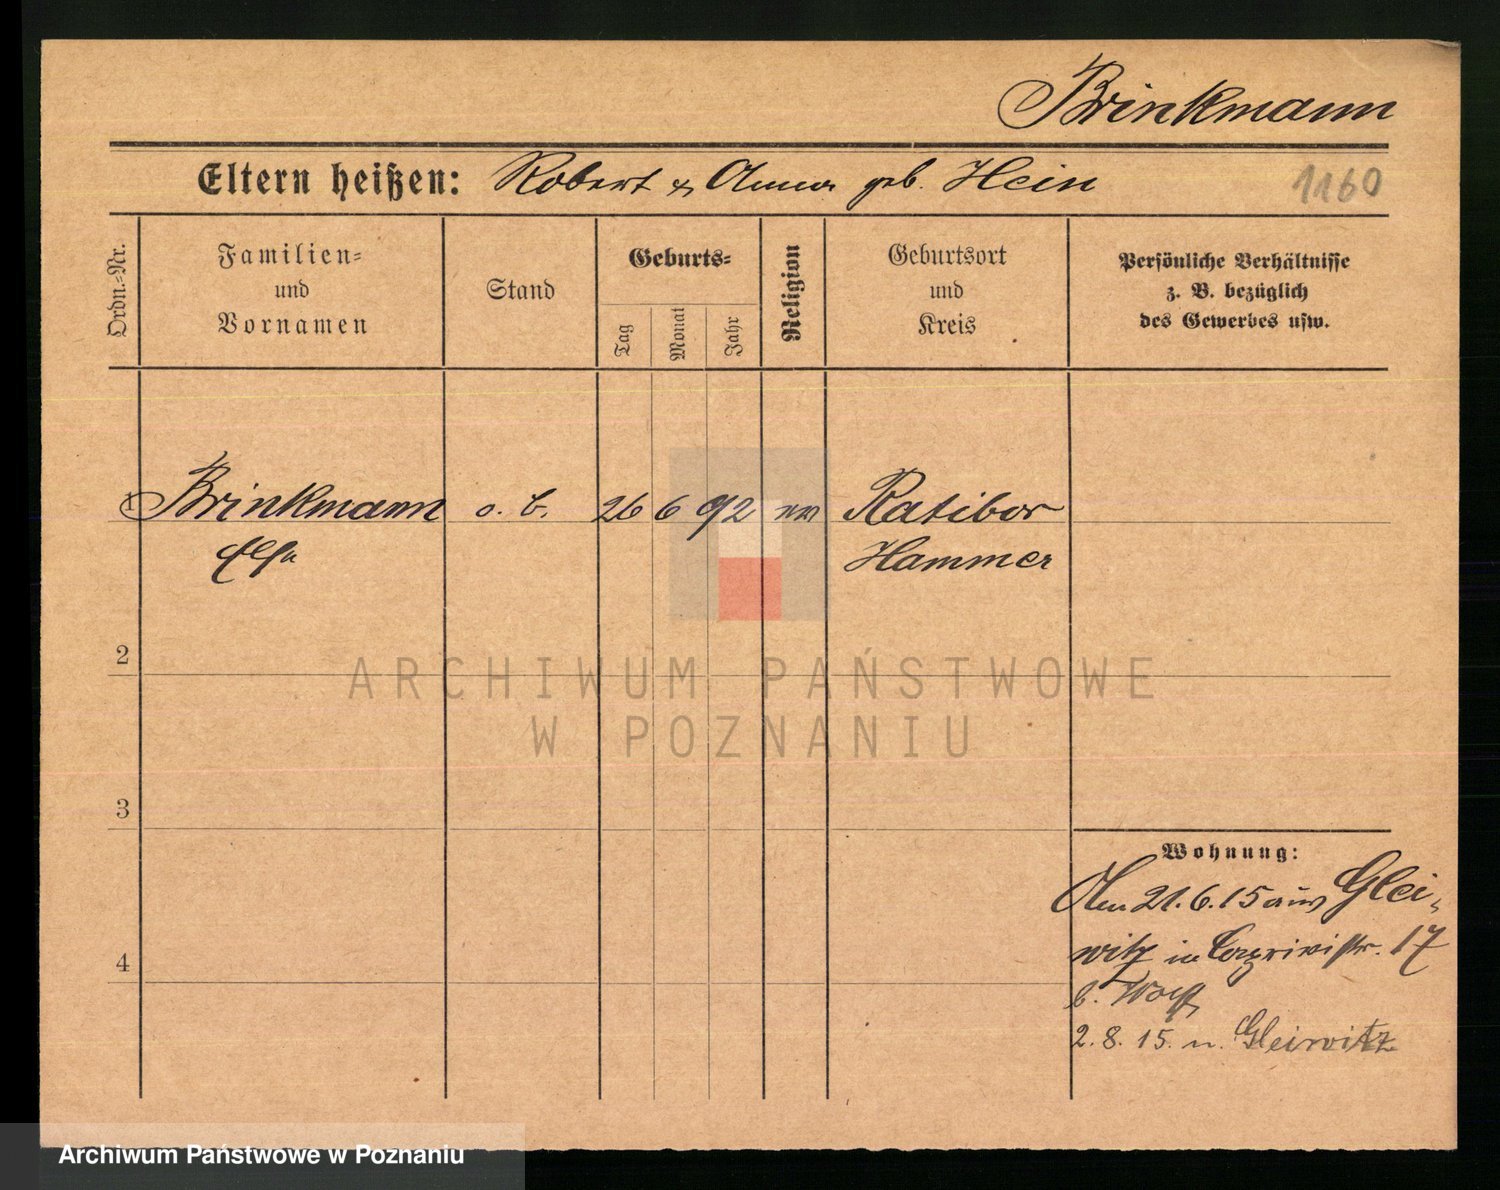 Brinkmann
Eltern heißen: Robert & Anna geb. Hein
1160
Ordn.-Nr.
Familien-
und
Vornamen
Stand
Geburts-
Tag
Monat
Jahr
Religion
Geburtsort
und
Kreis
Persönliche Verhältnisse
z. B. bezüglich
des Gewerbes usw.
1 Brinkmann o. b. 26 6 92 Ratibor
Elsa Hammer
2
ARCHIWUM PAŃSTWOWE
W POZNANIU
3
Wohnung:
Am 21.6.15 aus Glei-
witz in Caprivistr. 17
4
b.
2.8.15. n. Gleiwitz
Archiwum Państwowe w Poznaniu